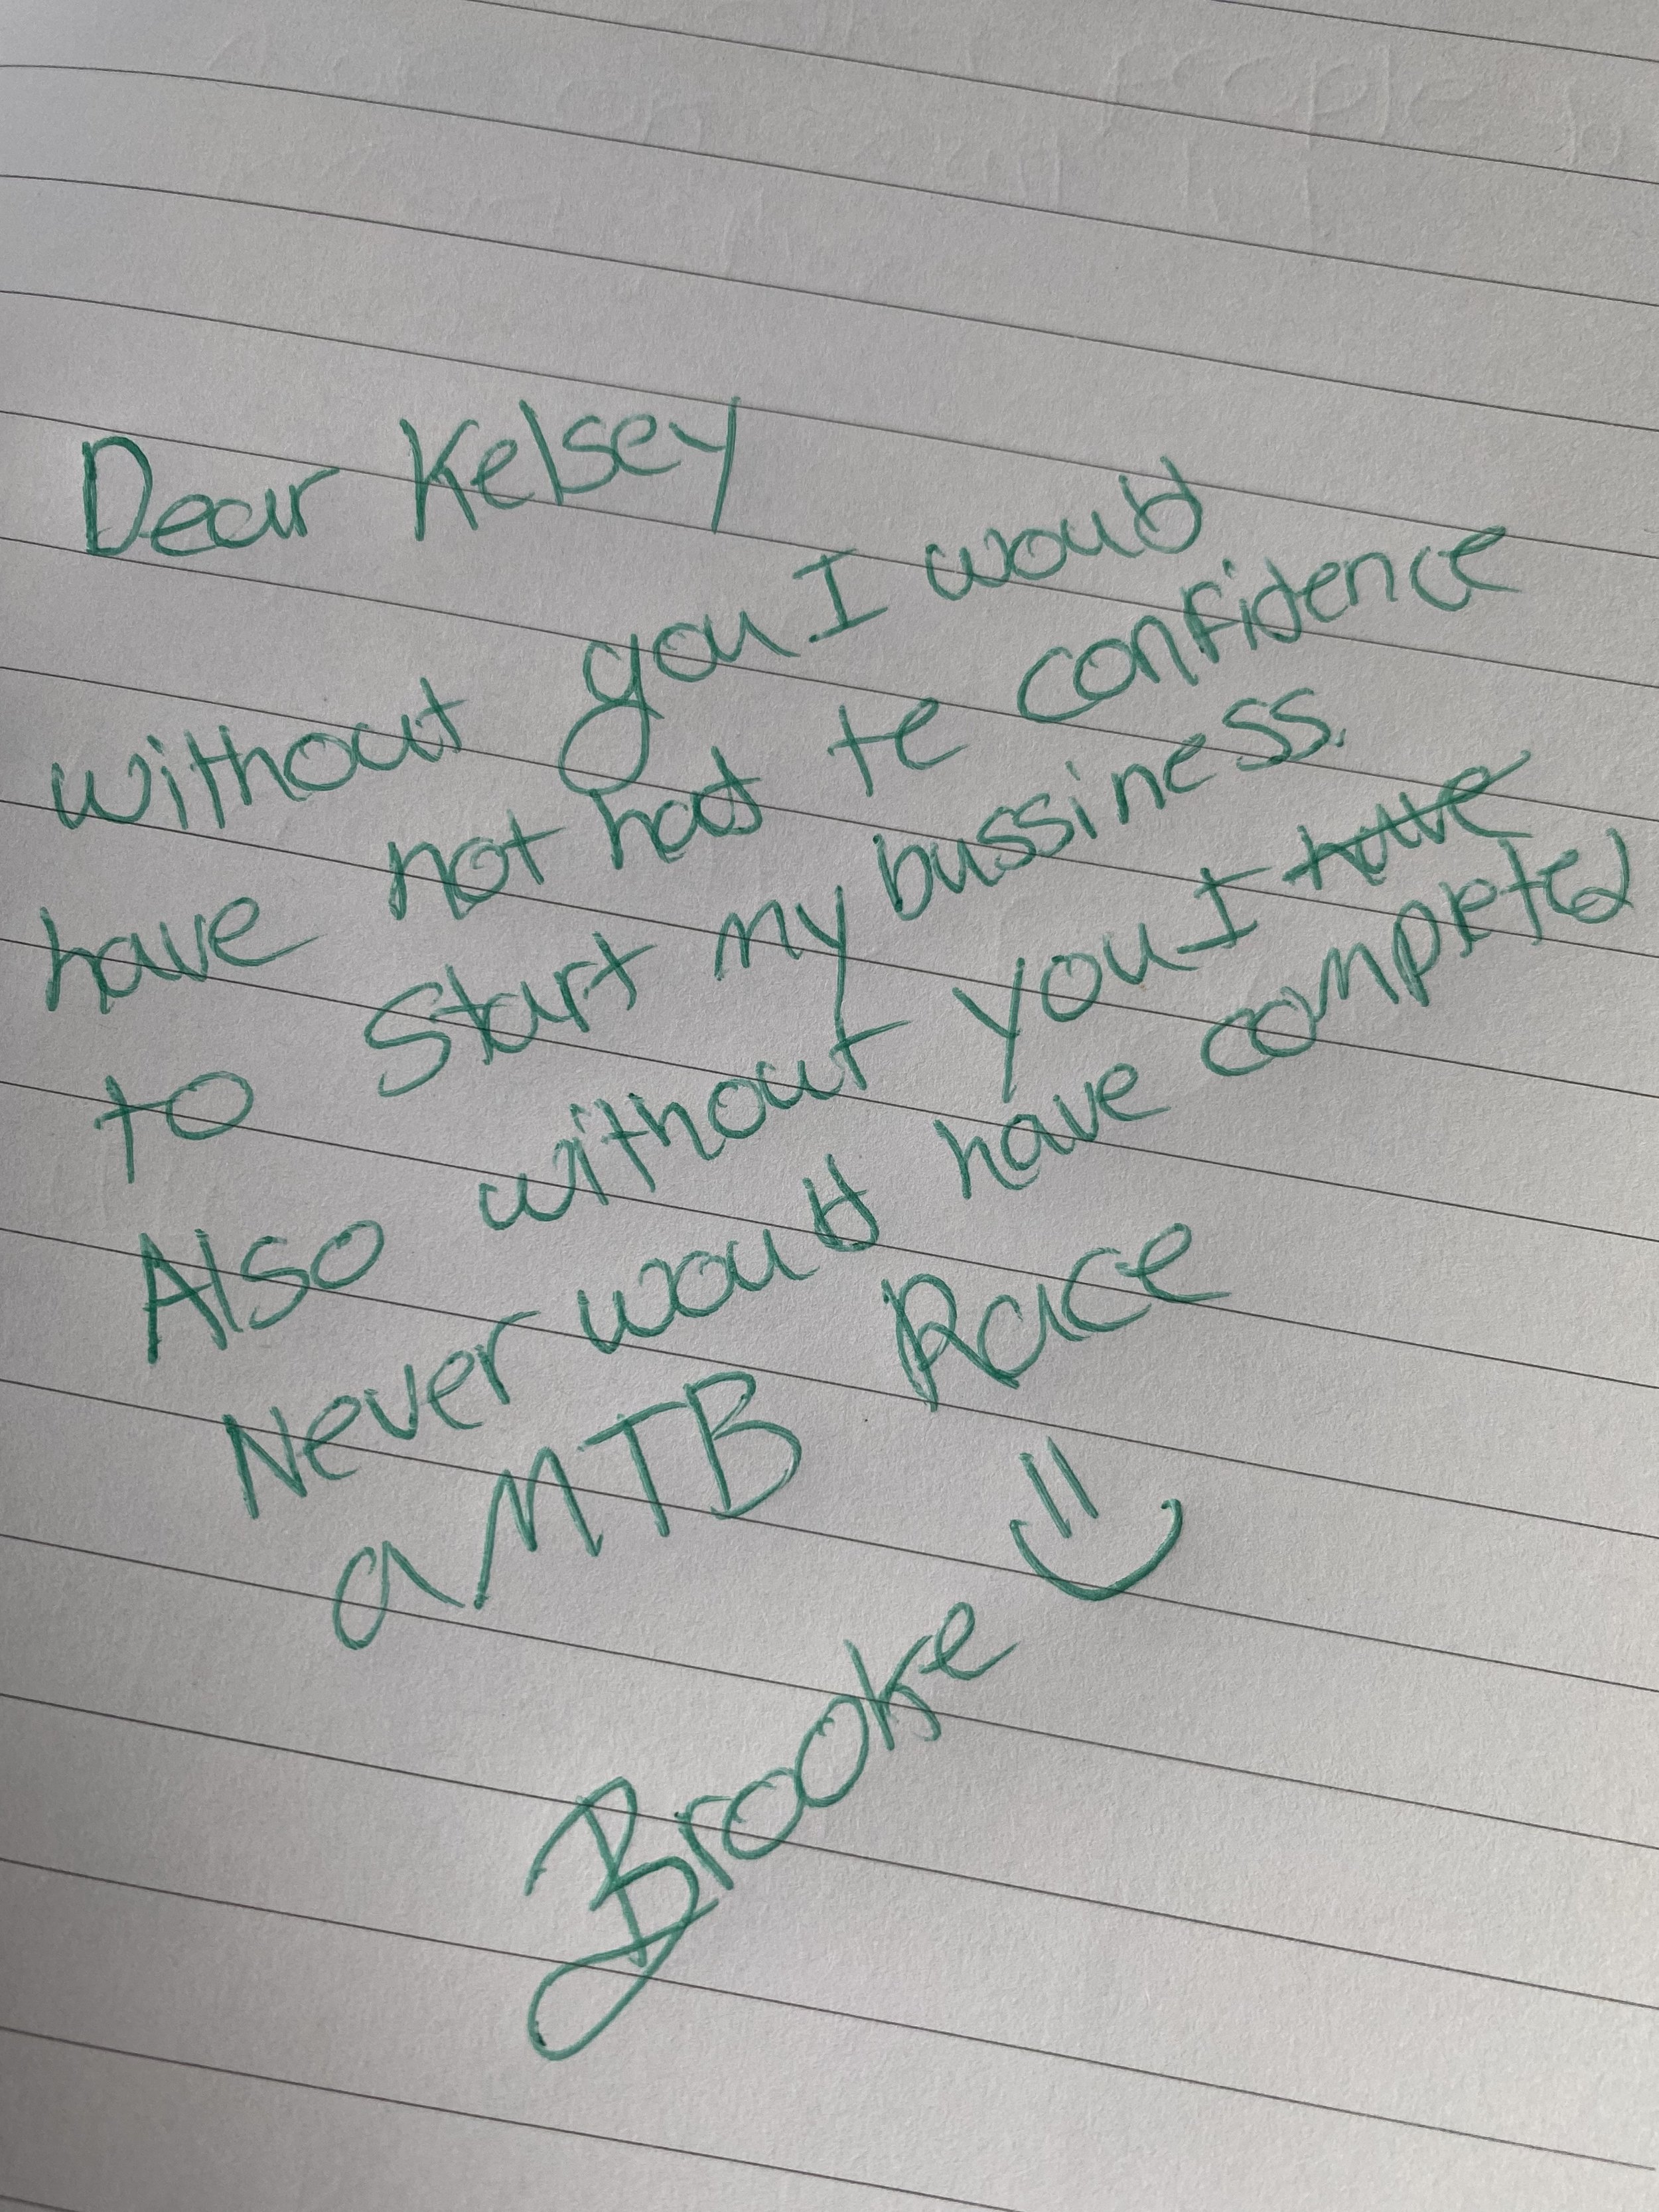 Dear Kelsey
without you I would
have not had te confidence
to start my bussiness.
Also without you I have
Never would have completed
a MTB Race
Brooke